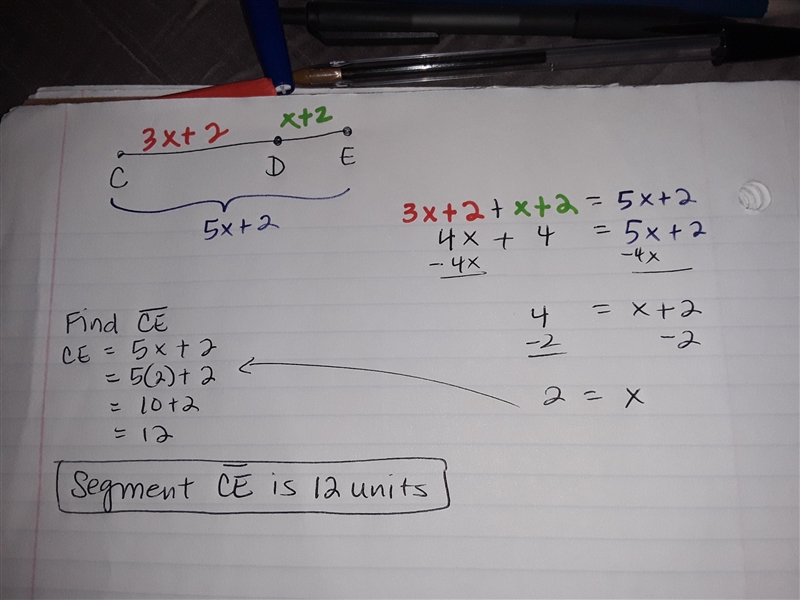 3x+2 x+2
C D E
5x+2
3x+2 + x+2 = 5x+2
4x + 4 = 5x+2
-4x -4x
4 = x+2
-2 -2
2 = x
Find CE
CE = 5x+2
= 5(2)+2
= 10+2
= 12
Segment CE is 12 units